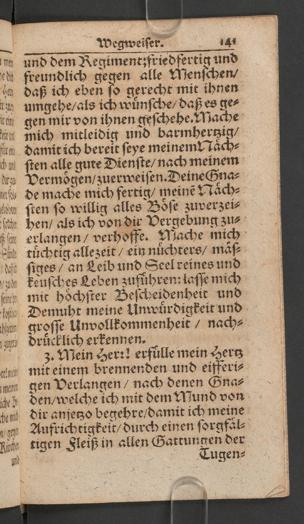 Wegweiser. 141
und dem Regiment; friedfertig und
freundlich gegen alle Menschen/
daß ich eben so gerecht mit ihnen
umgehe/ als ich wünsche/ daß es ge-
gen mir von ihnen geschehe. Mache
mich mitleidig und barmhertzig/
damit ich bereit seye meinem Näch-
sten alle gute Dienste/ nach meinem
Vermögen/ zuerweisen. Deine Gna-
de mache mich fertig/ meinē Näch-
sten so willig alles Böse zuverzei-
hen/ als ich von dir Vergebung zu-
erlangen/ verhoffe. Mache mich
tüchtig allezeit/ ein nüchters/ mäs-
siges/ an Leib und Seel reines und
keusches Leben zuführen: lasse mich
mit höchster Bescheidenheit und
Demuht meine Unwürdigkeit und
grosse Unvollkommenheit/ nach-
drücklich erkennen.
3. Mein Herr! erfülle mein Hertz
mit einem brennenden und eifferi-
gen Verlangen/ nach denen Gna-
den/ welche ich mit dem Mund von
dir anjetzo begehre/ damit ich meine
Aufrichtigkeit/ durch einen sorgfäl-
tigen Fleiß in allen Gattungen der
Tugen-